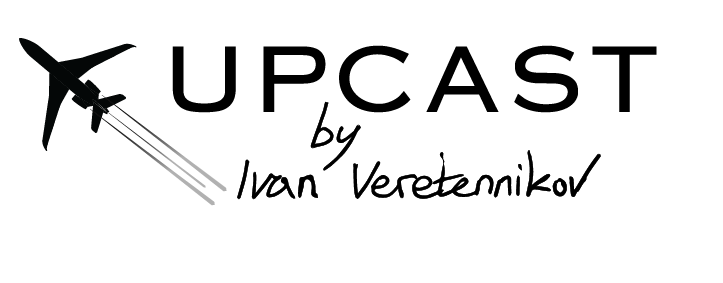 UPCAST
by
Ivan Veretennikov